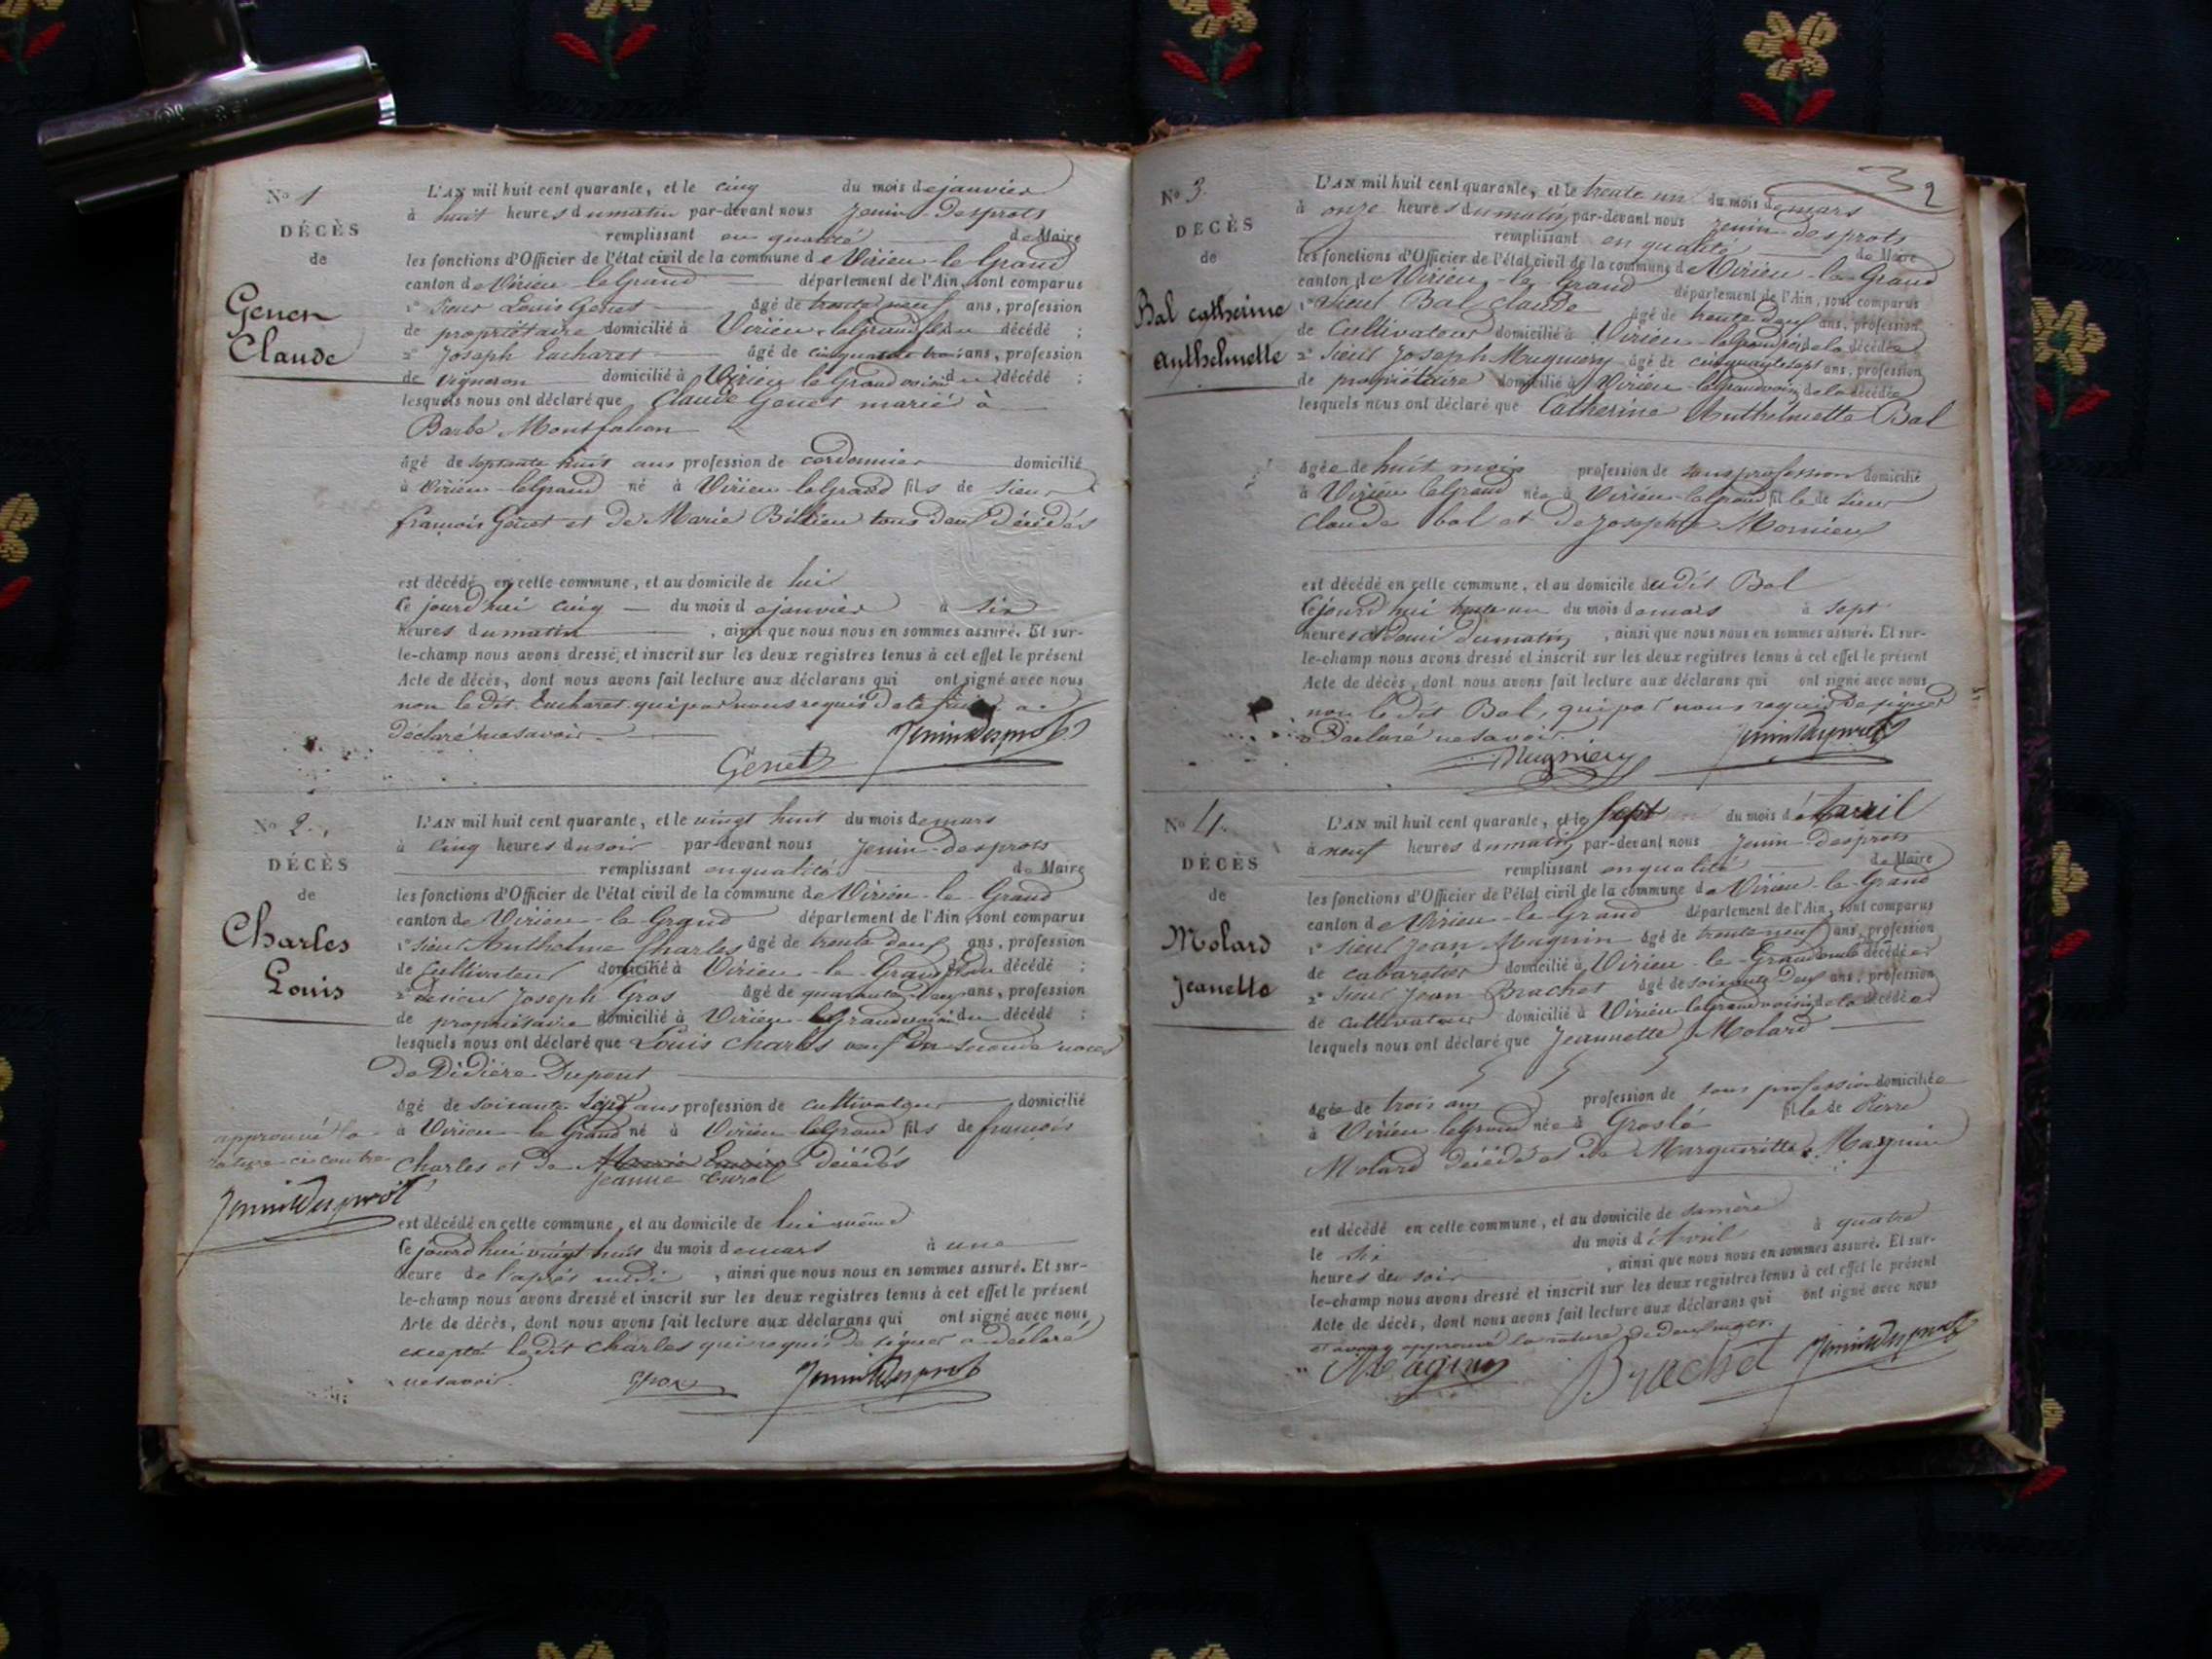 No 1
DÉCÈS
de
Genen
Claude
L'AN mil huit cent quarante, et le cinq du mois de janvier
à huit heures du matin par-devant nous Jenin Desprots
remplissant en qualité de Maire
les fonctions d'Officier de l'état civil de la commune de Virieu-le-Grand
canton de Virieu le Grand département de l'Ain, sont comparus
1º Sieur Louis Genet âgé de trente neuf ans, profession
de propriétaire domicilié à Virieu-le Grand fils du décédé ;
2º Joseph Eucharet âgé de cinquante trois ans, profession
de vigneron domicilié à Virieu le Grand voisin du décédé ;
lesquels nous ont déclaré que Claude Genet marié à
Barbe Montfalcon
âgé de septante huit ans profession de cordonnier domicilié
à Virieu-le Grand né à Virieu-le Grand fils de Sieur
françois Genet et de Marie Billieu tous deux Décédés
est décédé en cette commune, et au domicile de lui
ce jourd'hui cinq du mois de janvier à six
heures du matin, ainsi que nous nous en sommes assuré. Et sur-
le-champ nous avons dressé, et inscrit sur les deux registres tenus à cet effet le présent
Acte de décès, dont nous avons fait lecture aux déclarans qui ont signé avec nous
non le dit Eucharet qui par nous requis de le faire a
déclaré ne savoir
Genet JeninDesprots
No 2.
DÉCÈS
de
Charles
Louis
L'AN mil huit cent quarante, et le vingt huit du mois de mars
à cinq heures du soir par-devant nous Jenin-Desprots
remplissant en qualité de Maire
les fonctions d'Officier de l'état civil de la commune de Virieu-le-Grand
canton de Virieu-le Grand département de l'Ain, sont comparus
1º Sieur Anthelme Charles âgé de trente deux ans, profession
de Cultivateur domicilié à Virieu-le-Grand fils du décédé ;
2º Joseph Gros âgé de quarante deux ans, profession
de propriétaire domicilié à Virieu-le Grand voisin du décédé ;
lesquels nous ont déclaré que Louis Charles veuf en seconde noces
de Didière Dupont
âgé de soixante Sept ans profession de cultivateur domicilié
à Virieu-le Grand né à Virieu le Grand fils de françois
Charles et de Décédés
Jeanne
approuvé la
rature ci contre
JeninDesprots
est décédé en cette commune, et au domicile de lui même
ce jourd'hui vingt huit du mois de mars à une
heure de l'après midi, ainsi que nous nous en sommes assuré. Et sur-
le-champ nous avons dressé et inscrit sur les deux registres tenus à cet effet le présent
Acte de décès, dont nous avons fait lecture aux déclarans qui ont signé avec nous
excepté le dit Charles qui requis de signer a déclaré
ne savoir.
Gros JeninDesprots
2
No 3.
DÉCÈS
de
Bal catherine
Anthelmette
L'AN mil huit cent quarante, et le trente un du mois de mars
à onze heures du matin par-devant nous Jenin desprots
remplissant en qualité de Maire
les fonctions d'Officier de l'état civil de la commune de Virieu-le-Grand
canton de Virieu-le-Grand département de l'Ain, sont comparus
1º Sieur Bal Claude âgé de trente deux ans, profession
de Cultivateur domicilié à Virieu-le Grand père de la décédée
2º Sieur Joseph Mugniery âgé de cinquante sept ans, profession
de propriétaire domicilié à Virieu-le Grand voisin de la décédée
lesquels nous ont déclaré que Catherine Anthelmette Bal
âgée de huit mois profession de sans profession domicilié
à Virieu le Grand née à Virieu-le Grand fille de Sieur
Claude bal et de Josephte Mornieu
est décédé en cette commune, et au domicile du dit Bal
ce jourd'hui trente un du mois de mars à sept
heures et Demi du matin, ainsi que nous nous en sommes assuré. Et sur-
le-champ nous avons dressé et inscrit sur les deux registres tenus à cet effet le présent
Acte de décès, dont nous avons fait lecture aux déclarans qui ont signé avec nous
non le dit Bal, qui par nous requis de signer
a Déclaré ne savoir.
Mugniery JeninDesprots
No 4.
DÉCÈS
de
Molard
Jeanette
L'AN mil huit cent quarante, et le Sept du mois d'avril
à neuf heures du matin par-devant nous Jenin-Desprots
remplissant en qualité de Maire
les fonctions d'Officier de l'état civil de la commune de Virieu-le-Grand
canton de Virieu-le-Grand département de l'Ain, sont comparus
1º Sieur Jean Magnin âgé de trente neuf ans, profession
de cabaretier domicilié à Virieu-le-Grand oncle décédée
2º Sieur Jean Brachet âgé de soixante Deux ans, profession
de cultivateur domicilié à Virieu le Grand voisin de la décédée
lesquels nous ont déclaré que Jeannette Molard
âgée de trois ans profession de sans profession domiciliée
à Virieu le Grand née à Groslé fille de Pierre
Molard Décédé et de Margueritte Magnin
est décédé en cette commune, et au domicile de sa mère
le six du mois d'Avril à quatre
heures du soir, ainsi que nous nous en sommes assuré. Et sur-
le-champ nous avons dressé et inscrit sur les deux registres tenus à cet effet le présent
Acte de décès, dont nous avons fait lecture aux déclarans qui ont signé avec nous
et avons approuvé la rature
Magnin Brachet JeninDesprots